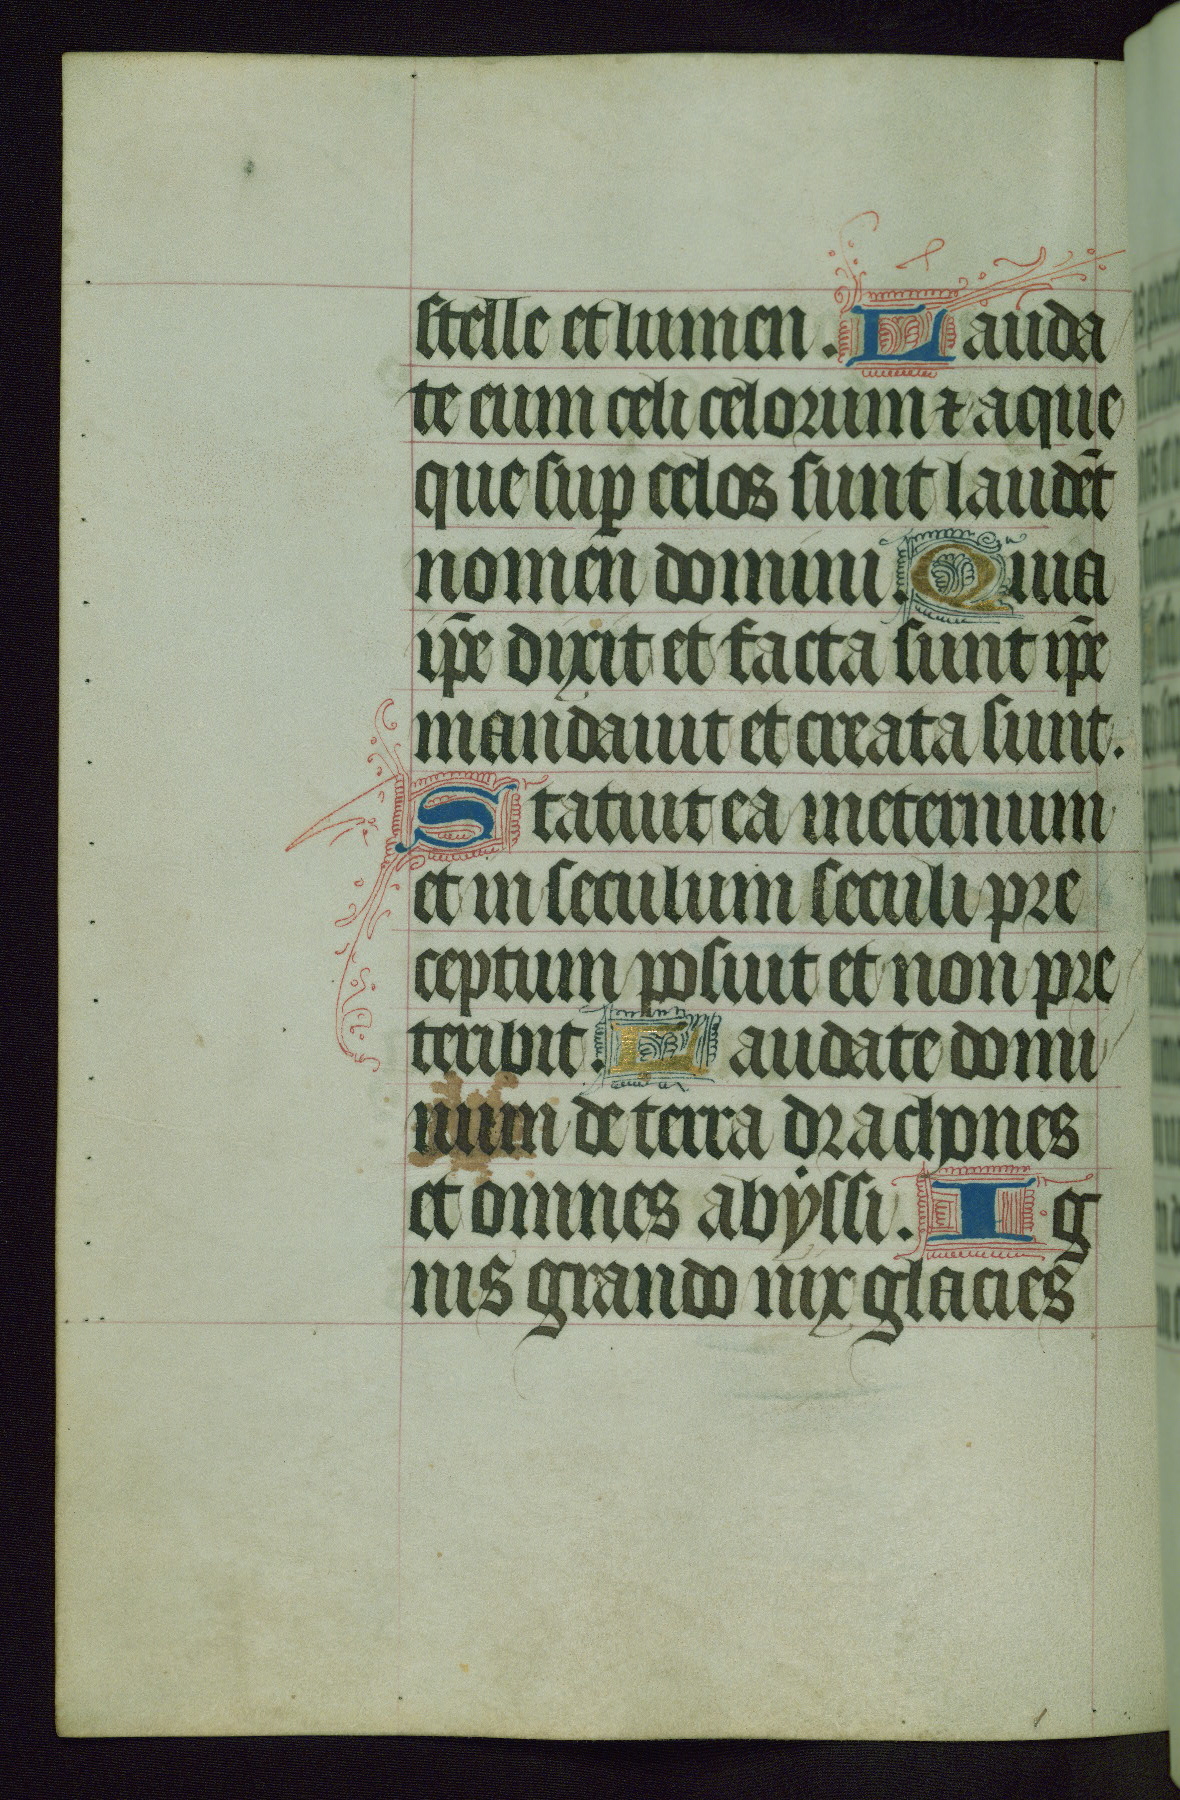 stelle et lumen. Lauda
te eum celi celorum ⁊ aque
que suꝑ celos sunt laudēt
nomen domini. Quia
ip̄e dixit et facta sunt ip̄e
mandauit et creata sunt.
Statuit ea ineternum
et in seculum seculi pre
ceptum posuit et non pre
teribit. Laudate domi
num de terra drachones
et omnes abyssi. Ig
nis grando nix glacies